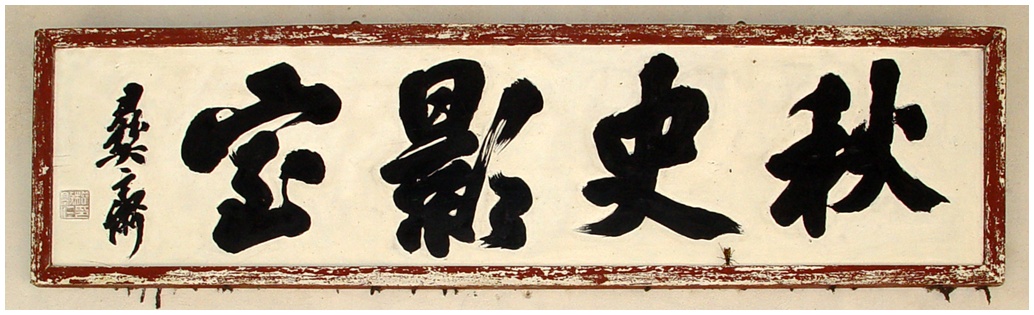 秋史影室
彝齋